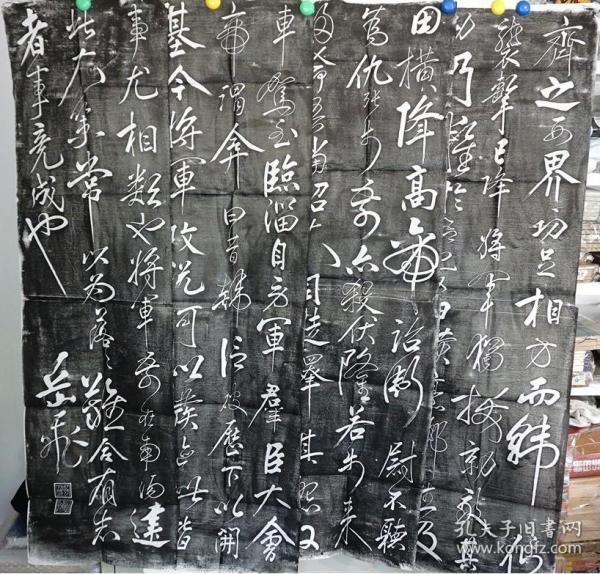 齊之西界功足相方而韓信
襲擊已降將軍獨拔勍敵其
功乃難於信也又田橫烹酈生及
田橫降高帝詔衛尉不聽
為仇張步前亦殺伏隆若步來
歸命吾當詔大司徒釋其怨又
車駕至臨淄自勞軍羣臣大會
帝謂弇曰昔韓信破歷下以開
基今將軍攻祝阿以發迹此皆
事尤相類也將軍前在南陽建
此大策常以為落落難合有志
者事竟成也
岳飛
孔夫子旧书网
www.kongfz.com